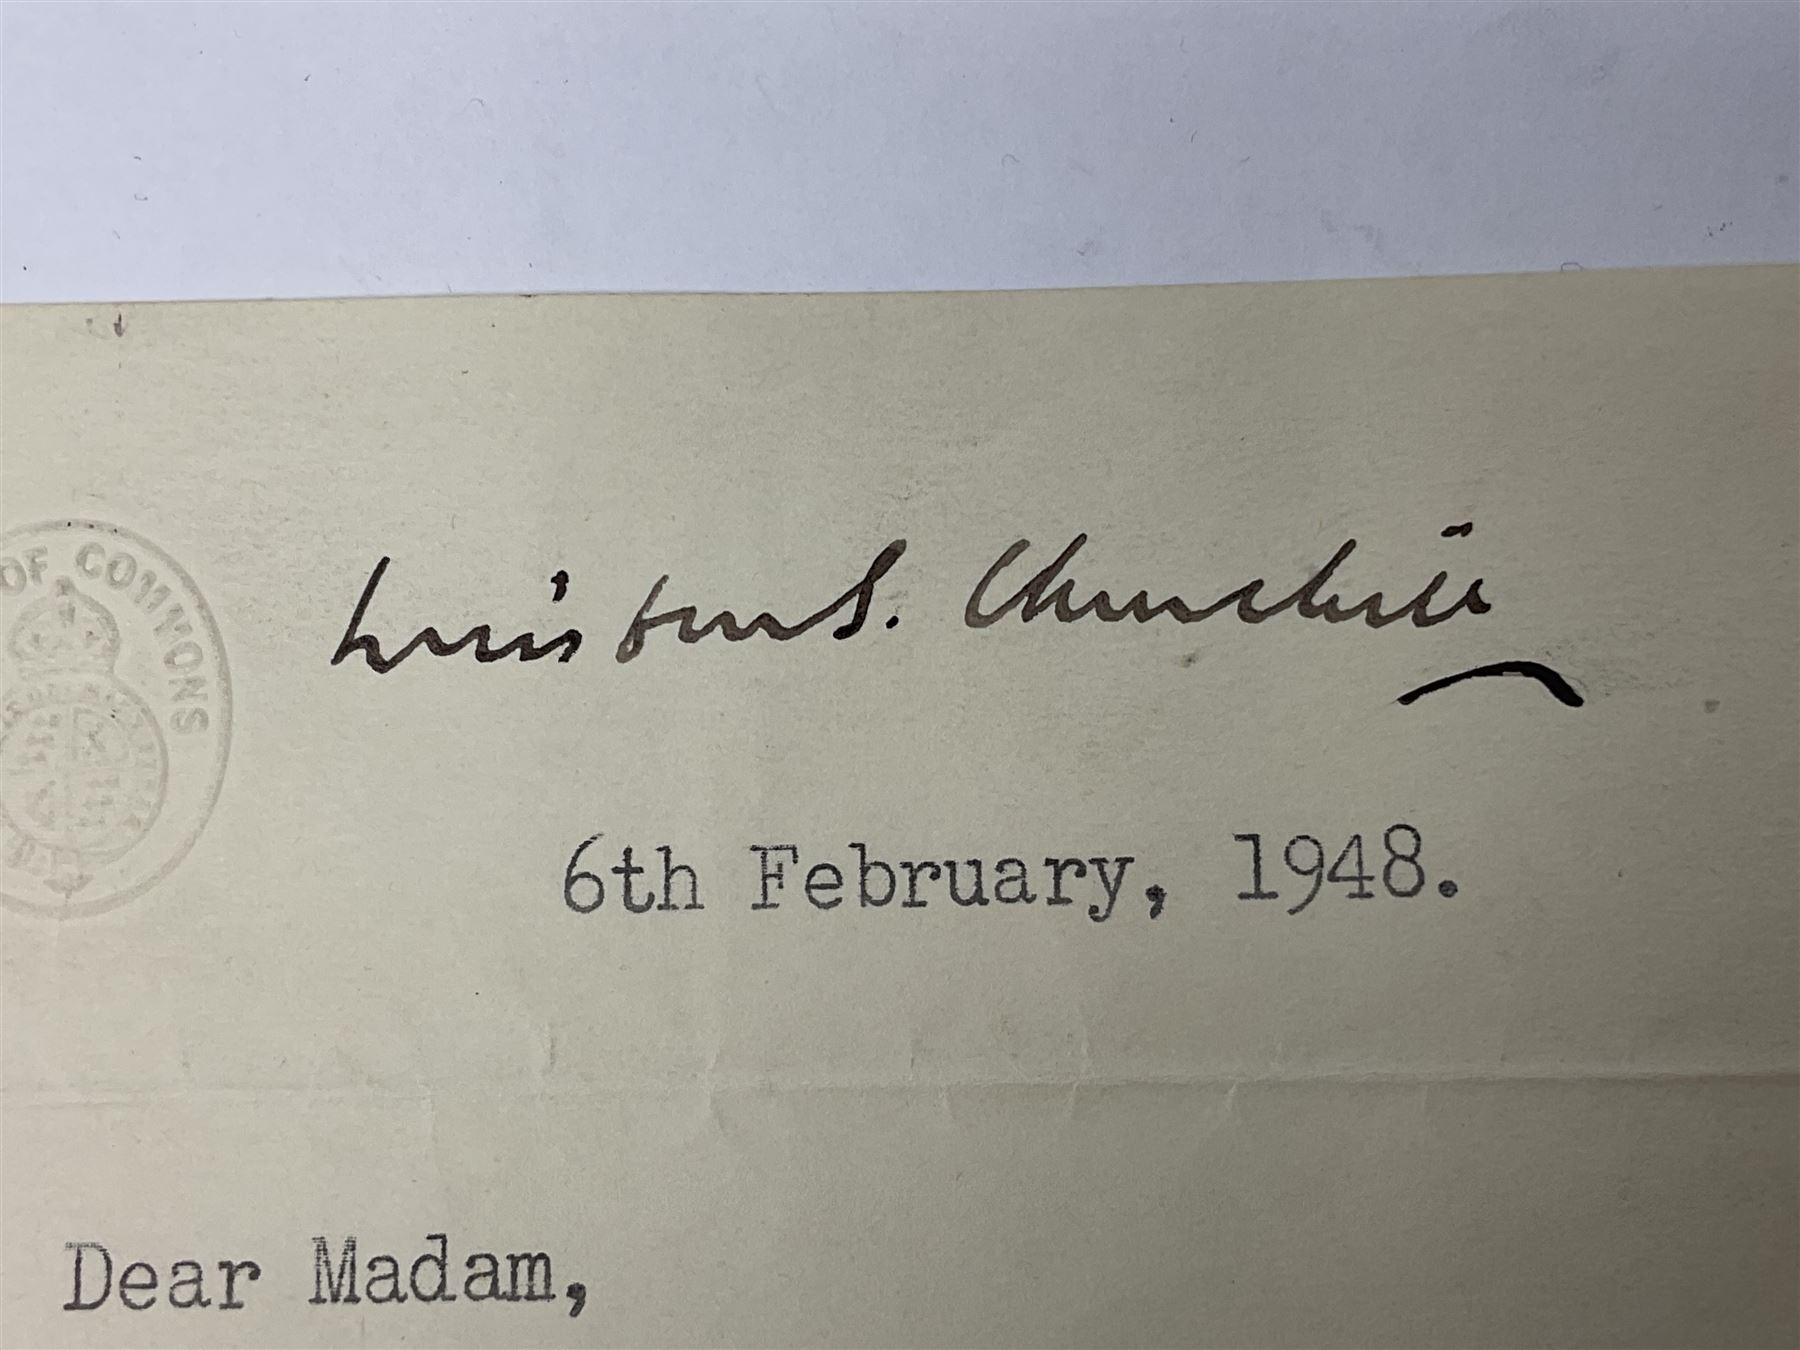 OF COMMONS
Winston S. Churchill
6th February, 1948.
Dear Madam,